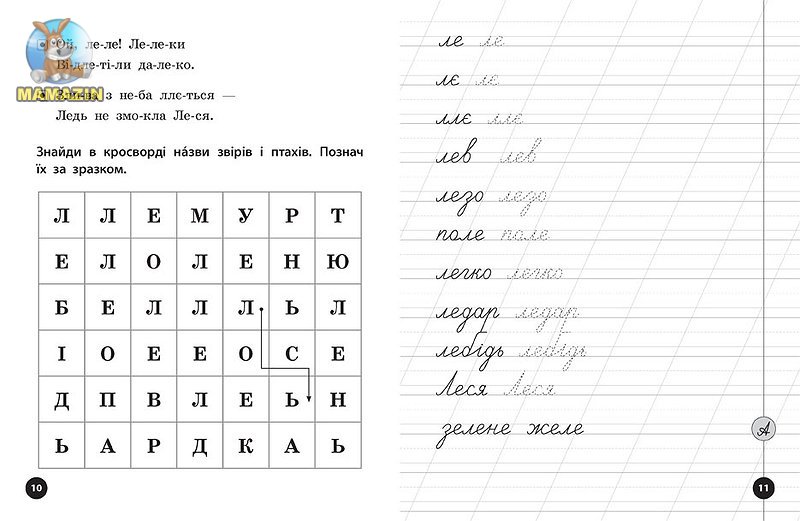 Ой, ле-ле! Ле-ле-ки
Ві-дле-ті-ли да-ле-ко.
Зли-ва з не-ба ллє-ться —
Ледь не змо-кла Ле-ся.
MAMAZIN
Знайди в кросворді на́зви звірів і птахів. Познач
їх за зразком.
Л Л Е М У Р Т
Е Л О Л Е Н Ю
Б Е Л Л Л Ь Л
І О Е Е О С Е
Д П В Л Е Ь Н
Ь А Р Д К А Ь
10
ле ле
лє лє
ллє ллє
лев лев
лезо лезо
поле поле
легко легко
ледар ледар
лебідь лебідь
Леся Леся
зелене желе
А
11